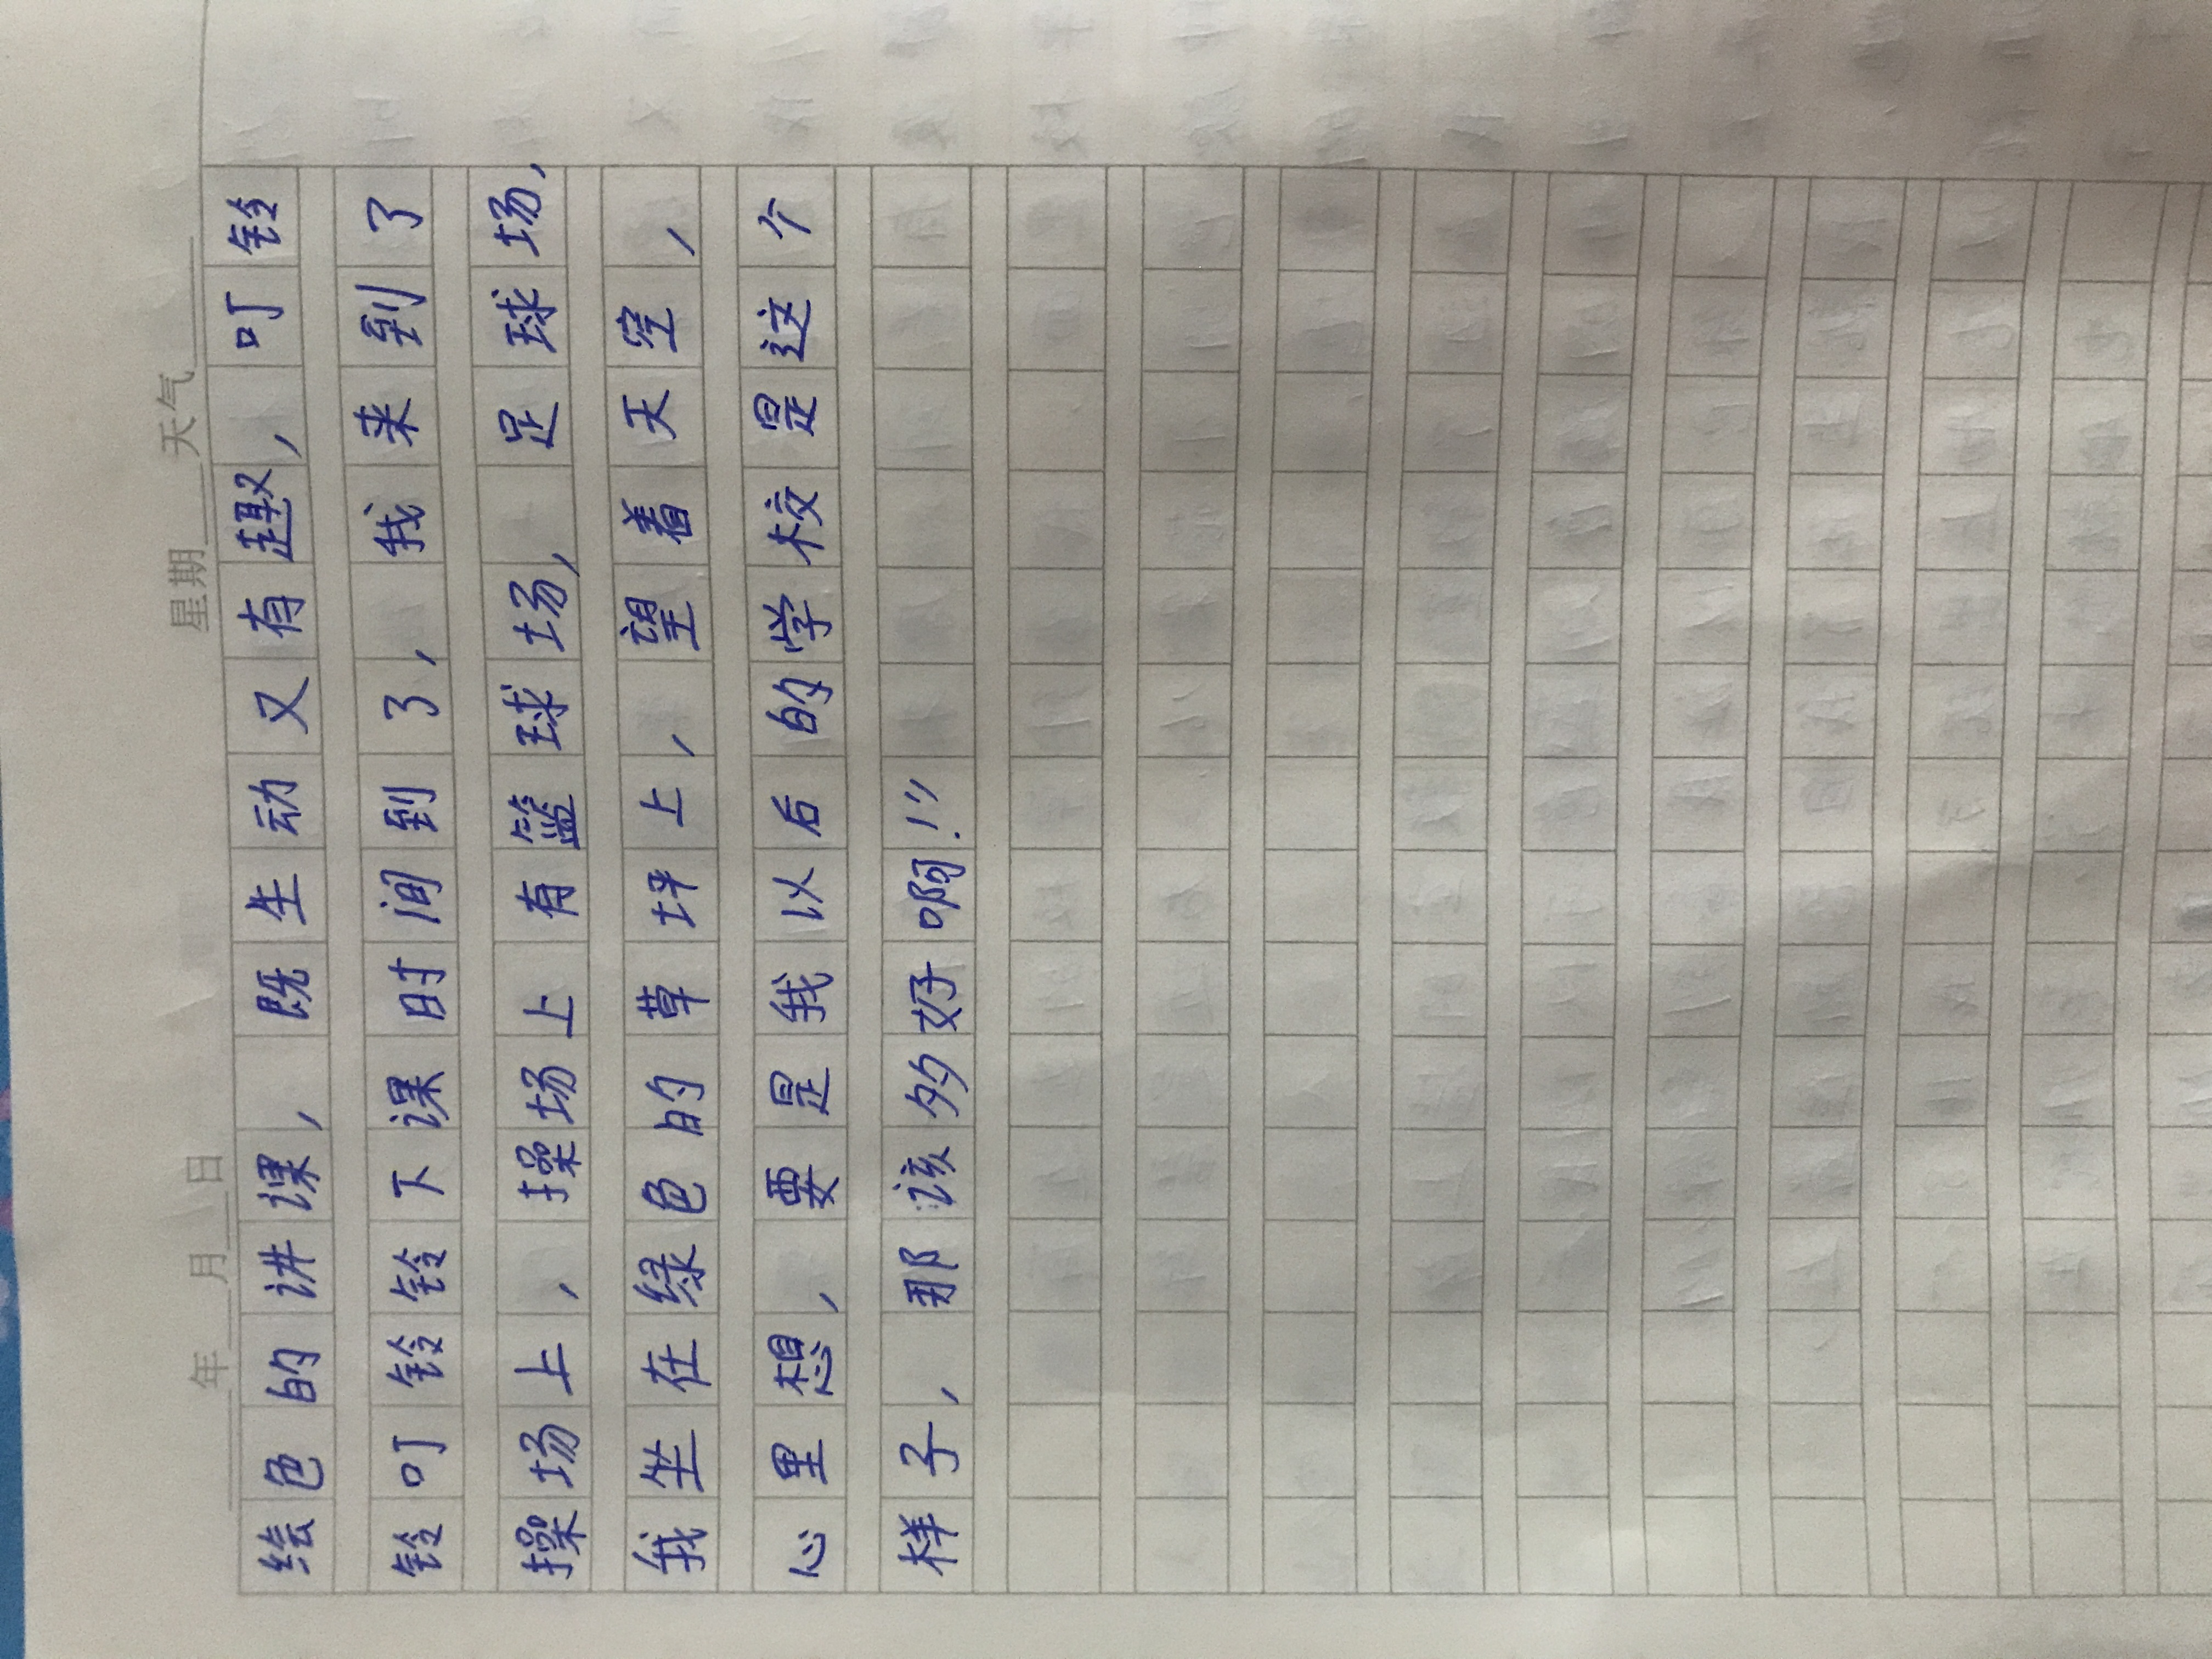 年 月 日 星期 天气
绘色的讲课，既生动又有趣，叮铃
铃叮铃铃下课时间到了，我来到了
操场上，操场上有篮球场，足球场，
我坐在绿色的草坪上，望着天空，
心里想，要是我以后的学校是这个
样子，那该多好啊！”